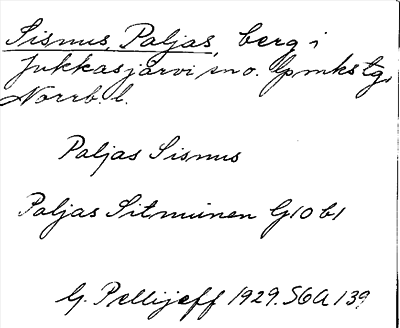 Sismus, Paljas, berg i
Jukkasjärvi sn o. lpmkstg,
Norrb. l.
Paljas Sismus
Paljas Sitmuinen G10 b1
G. Pellijeff 1929. S6A 139